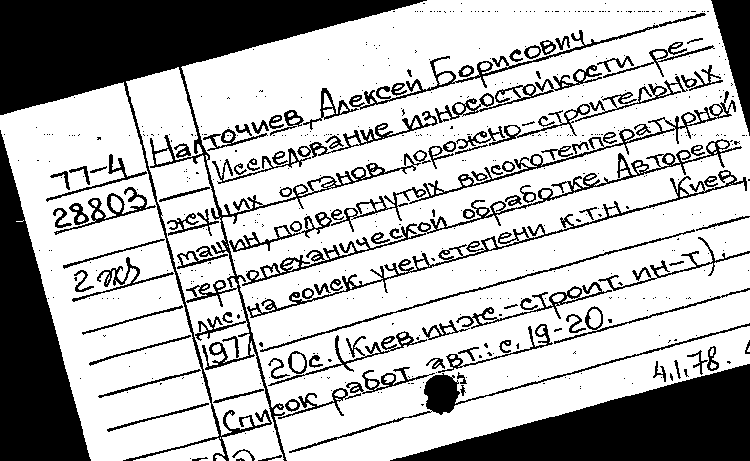 77-4
28803
2 экз
Надточиев, Алексей Борисович.
Исследование износостойкости ре-
жущих органов дорожно-строительных
машин, подвергнутых высокотемпературной
термомеханической обработке. Автореф.
дис. на соиск. учен. степени к.т.н. Киев,
1977.
20с. (Киев. инж.-строит. ин-т).
Список работ авт.: с. 19-20.
4.1.78.